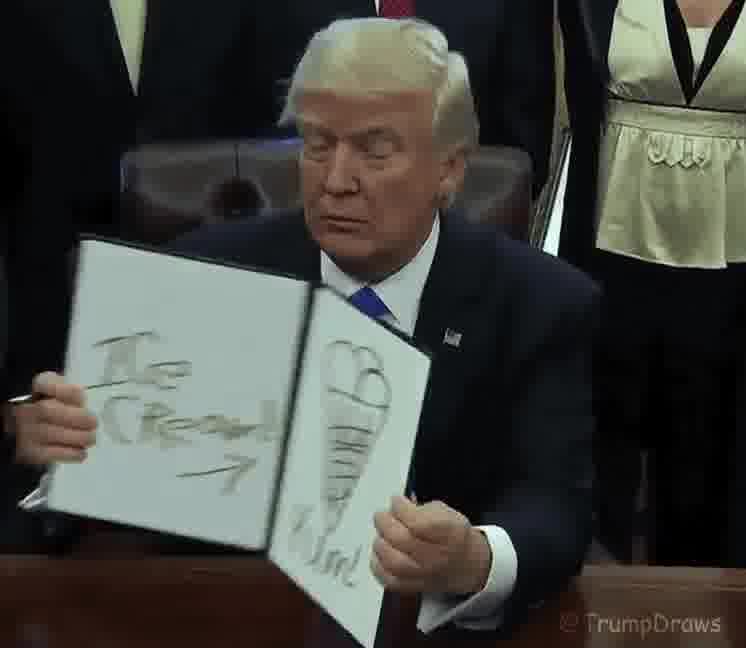 Ice
CReam
Yum!
@TrumpDraws